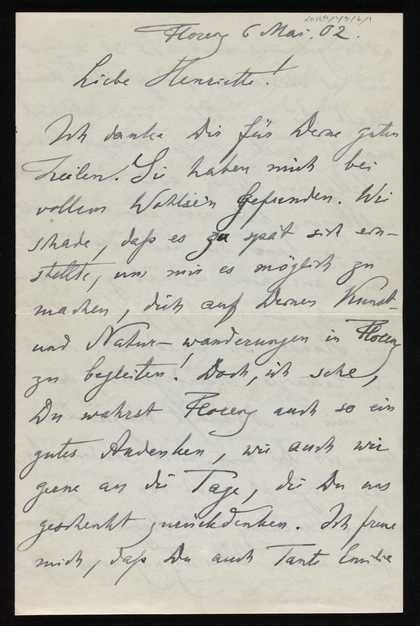 Florenz 6 Mai. 02.
Liebe Henriette!
Ich danke Dir für Deine guten
Zeilen. Sie haben mich bei
vollem Wohlsein gefunden. Wie
schade, daß es zu spät sich ein-
stellte, um mir es möglich zu
machen, dich auf Deinen Kunst-
und Natur-wanderungen in Florenz
zu begleiten! Doch, ich sehe,
Du wahrst Florenz auch so ein
gutes Andenken, wie auch wir
gerne an die Tage, die Du uns
geschenkt zurückdenken. Ich freue
mich, daß Du auch Tante Emilie